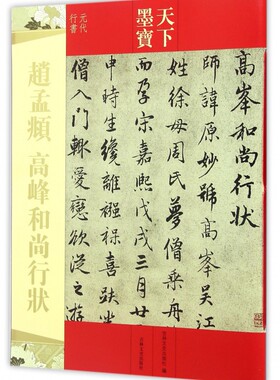 天下
墨寶
元代
行書
趙孟頫 高峰和尚行狀
高峯和尚行狀
師諱原妙號高峯吳江
姓徐母周氏夢僧乘舟
而孕宋嘉熙戊戌三月廿
申時生纔離襁褓喜趺坐
僧入門輒愛戀欲從之
吉林文史出版社